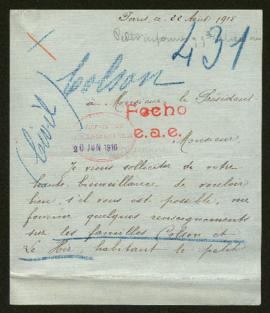 Paris, ce 22 Août 1918
431
Colson
Civil
à Monsieur le Président
Fecho
e.a.e.
20 JUN 1916
Monsieur
Je viens solliciter de votre
haute bienveillance, de vouloir
bien, s'il vous est possible, me
fournir quelques renseignements
sur les familles Colson et
Le Hir, habitant le petit